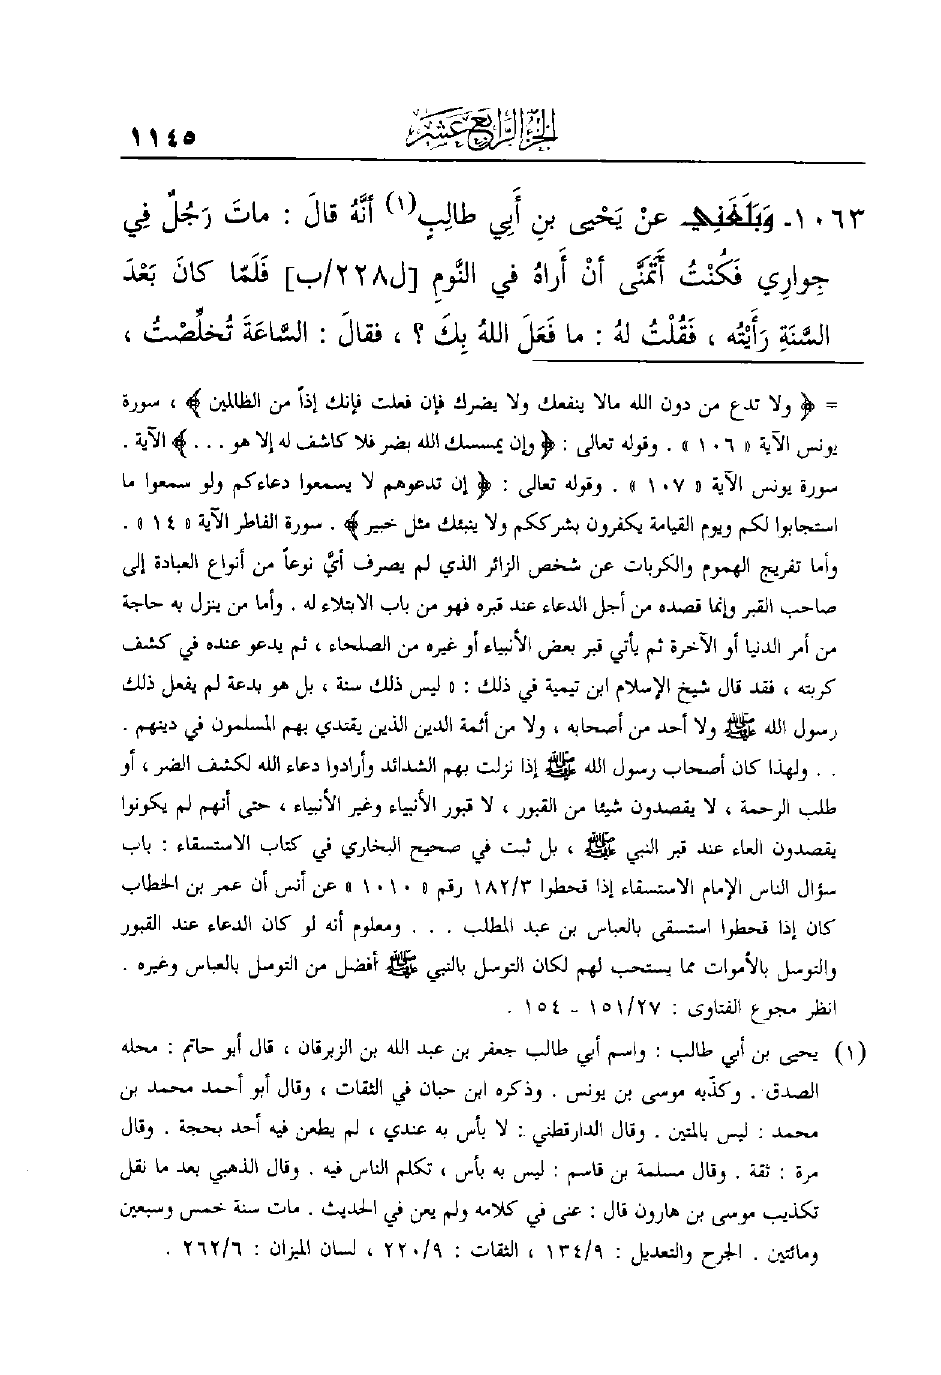 الجزء الرابع عشر
١١٤٥
١٠٦٣ـ وَبَلَغَنِي عنْ يَحْيى بنِ أَبي طالِبٍ(١) أنَّهُ قالَ : ماتَ رَجُلٌ فِي
جِوارِي فَكُنْتُ أَتَمَنَّى أنْ أَراهُ في النَّومِ [ل٢٢٨/ب] فَلَمّا كانَ بَعْدَ
السَّنَةِ رَأَيْتُه ، فَقُلْتُ لهُ : ما فَعَلَ اللهُ بِكَ ؟ ، فقالَ : السَّاعَةَ تُخلِّصْتُ ،
= ﴿ ولا تدع من دون الله مالا ينفعك ولا يضرك فإن فعلت فإنك إذاً من الظالمين ﴾ ، سورة
يونس الآية « ١٠٦ » . وقوله تعالى : ﴿ وإن يمسسك الله بضر فلا كاشف له إلا هو . . . ﴾ الآية .
سورة يونس الآية « ١٠٧ » . وقوله تعالى : ﴿ إن تدعوهم لا يسمعوا دعاءكم ولو سمعوا ما
استجابوا لكم ويوم القيامة يكفرون بشرككم ولا ينبئك مثل خبير ﴾ . سورة الفاطر الآية « ١٤ » .
وأما تفريج الهموم والكربات عن شخص الزائر الذي لم يصرف أيَّ نوعاً من أنواع العبادة إلى
صاحب القبر وإنما قصده من أجل الدعاء عند قبره فهو من باب الابتلاء له . وأما من ينزل به حاجة
من أمر الدنيا أو الآخرة ثم يأتي قبر بعض الأنبياء أو غيره من الصلحاء ، ثم يدعو عنده في كشف
كربته ، فقد قال شيخ الإسلام ابن تيمية في ذلك : « ليس ذلك سنة ، بل هو بدعة لم يفعل ذلك
رسول الله ﷺ ولا أحد من أصحابه ، ولا من أئمة الدين الذين يقتدي بهم المسلمون في دينهم .
. . ولهذا كان أصحاب رسول الله ﷺ إذا نزلت بهم الشدائد وأرادوا دعاء الله لكشف الضر ، أو
طلب الرحمة ، لا يقصدون شيئا من القبور ، لا قبور الأنبياء وغير الأنبياء ، حتى أنهم لم يكونوا
يقصدون العاء عند قبر النبي ﷺ ، بل ثبت في صحيح البخاري في كتاب الاستسقاء : باب
سؤال الناس الإمام الاستسقاء إذا قحطوا ١٨٢/٣ رقم « ١٠١٠ » عن أنس أن عمر بن الخطاب
كان إذا قحطوا استسقى بالعباس بن عبد المطلب . . . ومعلوم أنه لو كان الدعاء عند القبور
والتوسل بالأموات مما يستحب لهم لكان التوسل بالنبي ﷺ أفضل من التوسل بالعباس وغيره .
انظر مجوع الفتاوى : ١٥١/٢٧ ـ ١٥٤ .
(١) يحيى بن أبي طالب : واسم أبي طالب جعفر بن عبد الله بن الزبرقان ، قال أبو حاتم : محله
الصدق . وكذّبه موسى بن يونس . وذكره ابن حبان في الثقات ، وقال أبو أحمد محمد بن
محمد : ليس بالمتين . وقال الدارقطني : لا بأس به عندي ، لم يطعن فيه أحد بحجة . وقال
مرة : ثقة . وقال مسلمة بن قاسم : ليس به بأس ، تكلم الناس فيه . وقال الذهبي بعد ما نقل
تكذيب موسى بن هارون قال : عنى في كلامه ولم يعن في الحديث . مات سنة خمس وسبعين
ومائتين . الجرح والتعديل : ١٣٤/٩ ، الثقات : ٢٢٠/٩ ، لسان الميزان : ٢٦٢/٦ .